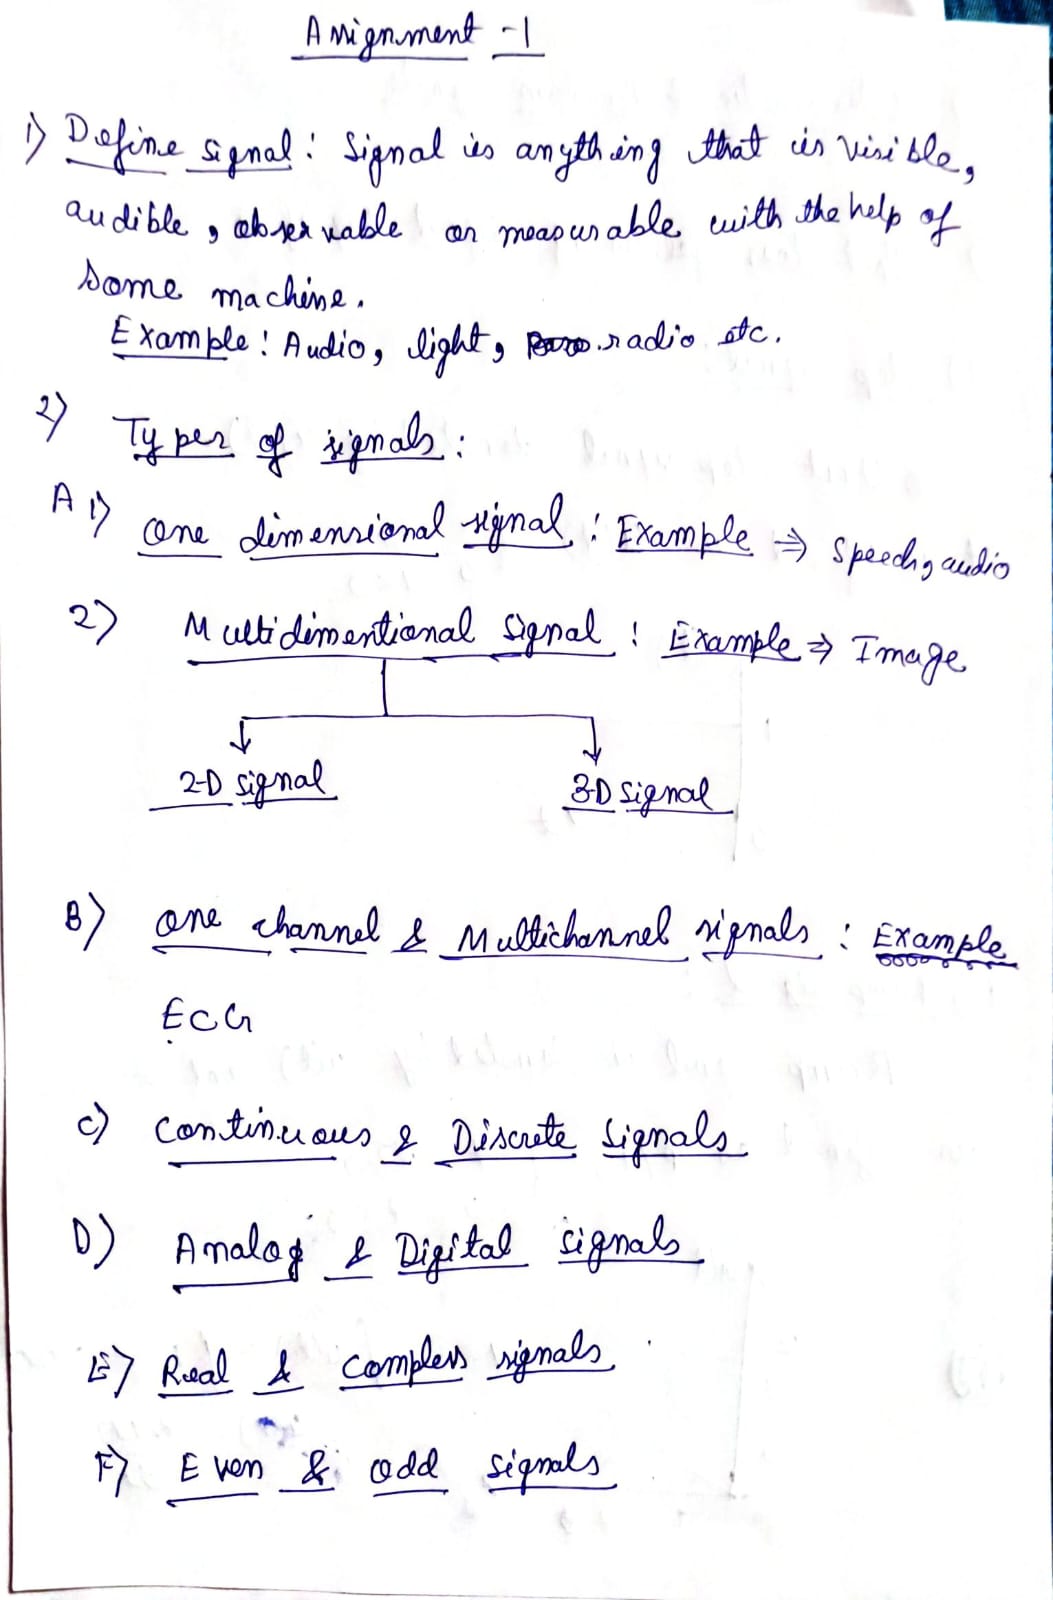 Assignment -1
1) Define signal : Signal is anything that is visible,
audible, observable or measurable with the help of
some machine.
Example : Audio, light, radio etc.
2) Types of signals :
A 1) One dimensional signal : Example ⇒ Speech, audio
2) Multidimentional signal : Example ⇒ Image
2-D signal 3-D signal
B) One channel & Multichannel signals : Example
ECG
C) Continuous & Discrete signals
D) Analog & Digital signals
E) Real & Complex signals
F) Even & odd signals